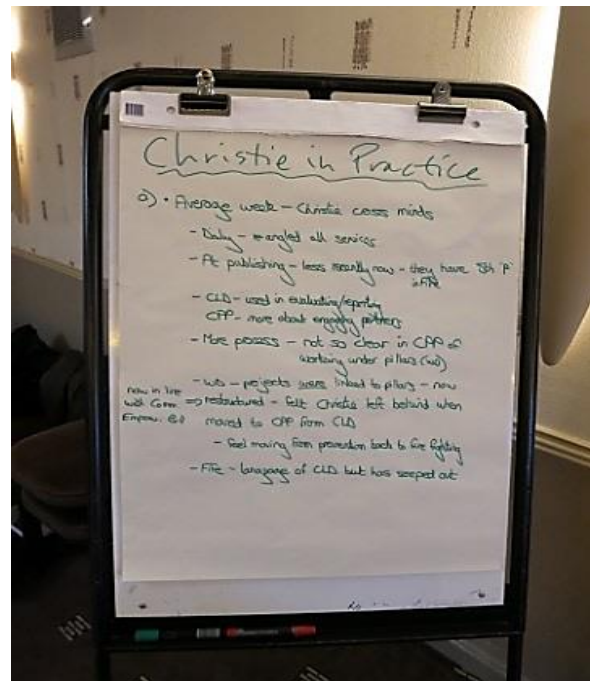 Christie in Practice
a) • Average week – Christie cross minds
– Daily – angled all services
– At publishing – less recently now – they have 5th 'P'
in Fife
– CLD – used in evaluating/reporting
CPP – more about engaging partners
– More process – not so clear in CPP of
working under pillars (WD)
– WD – projects were linked to pillars – now
now in line
with Comm.
Empow. Bill
⇒ restructured – felt Christie left behind when
moved to CPP from CLD
– feel moving from prevention back to fire fighting
– Fife – language of CLD but has seeped out